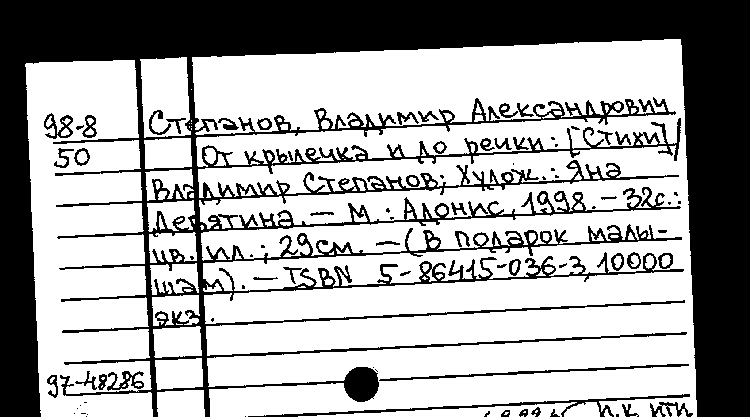 98-8 Степанов, Владимир Александрович
50 От крылечка и до речки: [Стихи] /
Владимир Степанов; Худож.: Яна
Девятина. — М.: Адонис, 1998. — 32с.:
цв. ил.; 29см. — (В подарок малы-
шам). — ISBN 5-86415-036-3, 10000
экз.
97-48286
п.к. нтп